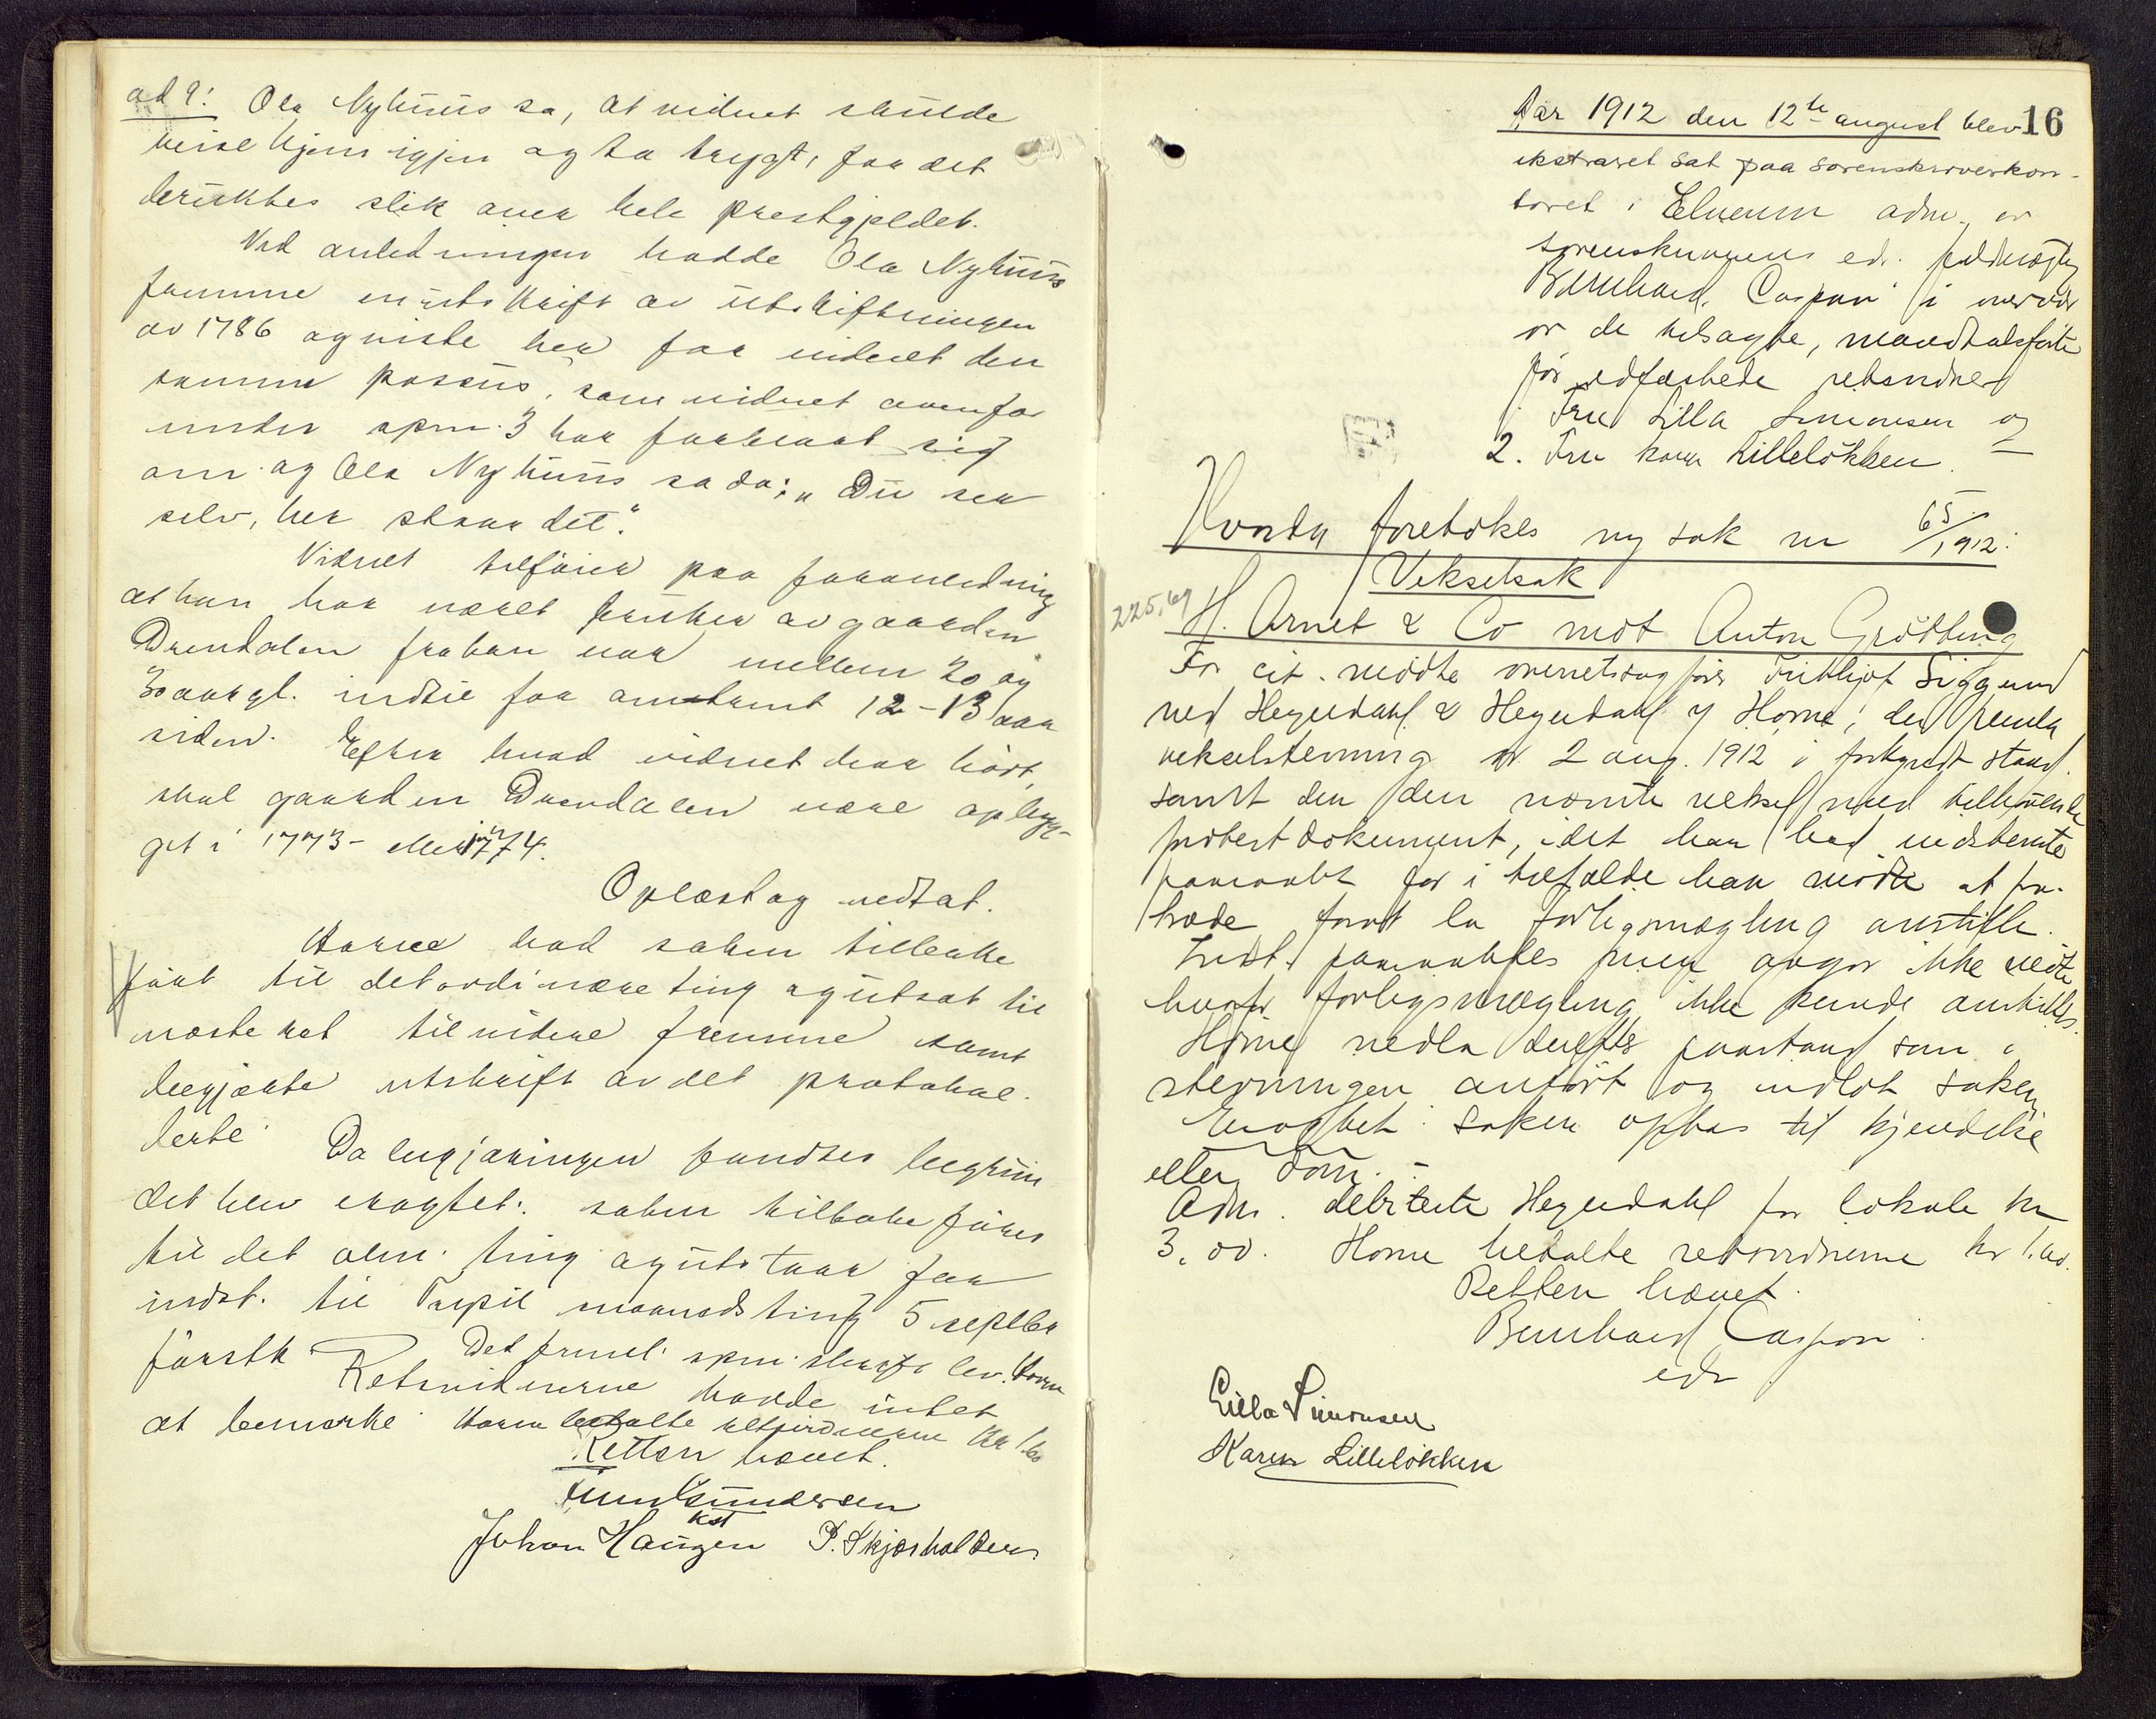 ad 9: Ola Nyhuus sa, at vidnet skulde
reise hjem igjen og ta trygt, for det
bruktes slik over hele prestgjeldet.
Ved anledningen hadde Ola Nyhuus
fremme utskrift av utskiftningen
av 1786 og viste her for vidnet den
samme passus, som vidnet ovenfor
under spm. 3 har forklart sig
om og Ola Nyhuus sa da: „Du ser
selv, her staar det."
Vidnet tilføier paa foranledning
at han har været bruker av gaarden
Drendalen fra han var mellem 20 og
30 aar gl. indtil for omtrent 12-13 aar
siden. Efter hvad vidnet har hørt,
skal gaarden Drendalen være oplyg-
get i 1773- eller 1774.
Oplæst og vedtat.
Horne bad saken tilbake
ført til det ordinære ting og utsat til
næste ret til videre fremme samt
begjærte utskrift av det protokol-
lerte. Da begjæringen fandtes begrun
det blev eragtet: saken tilbakeføres
til det alm. ting og utstaar for
indst. til Trysil maanedsting 5 septbr
førstk. Det freml. spm. skrift lev. Horne
Retsvidnerne hadde intet
at bemerke. Horne betalte retsvidnerne kr 1.60
Retten hævet.
Gundersen
kst
Johan Haugen P. Skjærholden
16
Aar 1912 den 12te august blev
ekstraret sat paa sorenskriverkon-
toret i Elverum adm. av
sorenskriverens eds. fuldmægtig
Bernhard Caspari i nærvær
av de tilsagte, mandtalsførte
før edfæstede retsvidner
1. Fru Lilla Simonsen og
2. Fru Karen Lilleløkken.
Hvorda foretokes ny sak nr 65/1912:
Vekselsak
225,69
H. Arnet & Co mot Anton Grøtting
For cit. mødte overretssagfører Fridthjof Siggerud
ved Heyerdahl & Heyerdahl v/ Horne; der fremla
vekselstevning av 2 aug. 1912 i forkyndt stand.
samt den den nævnte veksel med tilhørende
protestdokument, idet han bad indstevnte
paaraabt for i tilfælde han møtte at fra-
træde forat la forligsmægling anstille.
Indst. paaraabtes men angav ikke møte
hvorfor forligsmægling ikke kunde anstilles.
Horne nedla derefter paastand som i
stevningen anført og indlot saken
Eragtet: saken optas til kjendelse
eller dom.
Adm. debiterte Heyerdahl for lokale kr
3.00. Horne betalte retsvidnerne kr 1.60.
Retten hævet.
Bernhard Caspari
eds
Lilla Simonsen
Karen Lilleløkken